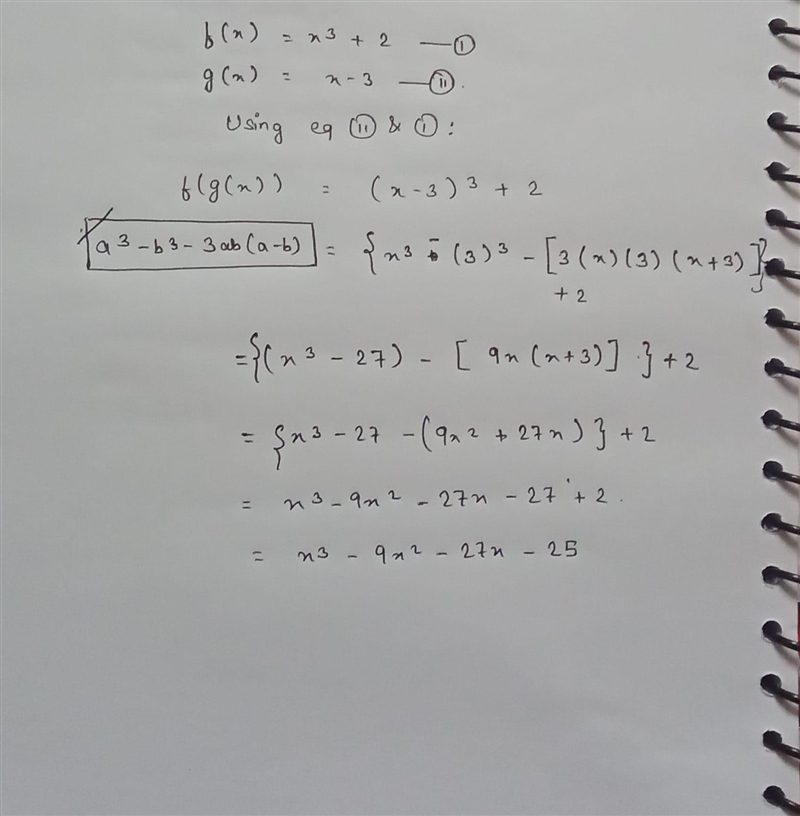 f(x) = x³ + 2 — (i)
g(x) = x - 3 — (ii).
Using eq (ii) & (i) :
f(g(x)) = (x-3)³ + 2
a³ - b³ - 3ab(a-b) = {x³ - (3)³ - [3(x)(3)(x+3)]}
+ 2
= {(x³ - 27) - [9x(x+3)] } + 2
= {x³ - 27 - (9x² + 27x)} + 2
= x³ - 9x² - 27x - 27 + 2.
= x³ - 9x² - 27x - 25